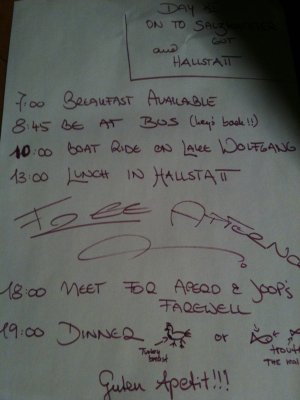 DAY
ON TO SALZKAMMER
GUT
and
HALLSTATT
7:00 BREAKFAST AVAILABLE
8:45 BE AT BUS (key's back!!)
10:00 BOAT RIDE ON LAKE WOLFGANG
13:00 LUNCH IN HALLSTATT
FREE AFTERNO
18:00 MEET FOR APERO & JOOP'S
FAREWELL
19:00 DINNER or
Turkey
breast
TROUT
THE
Guten Apetit!!!